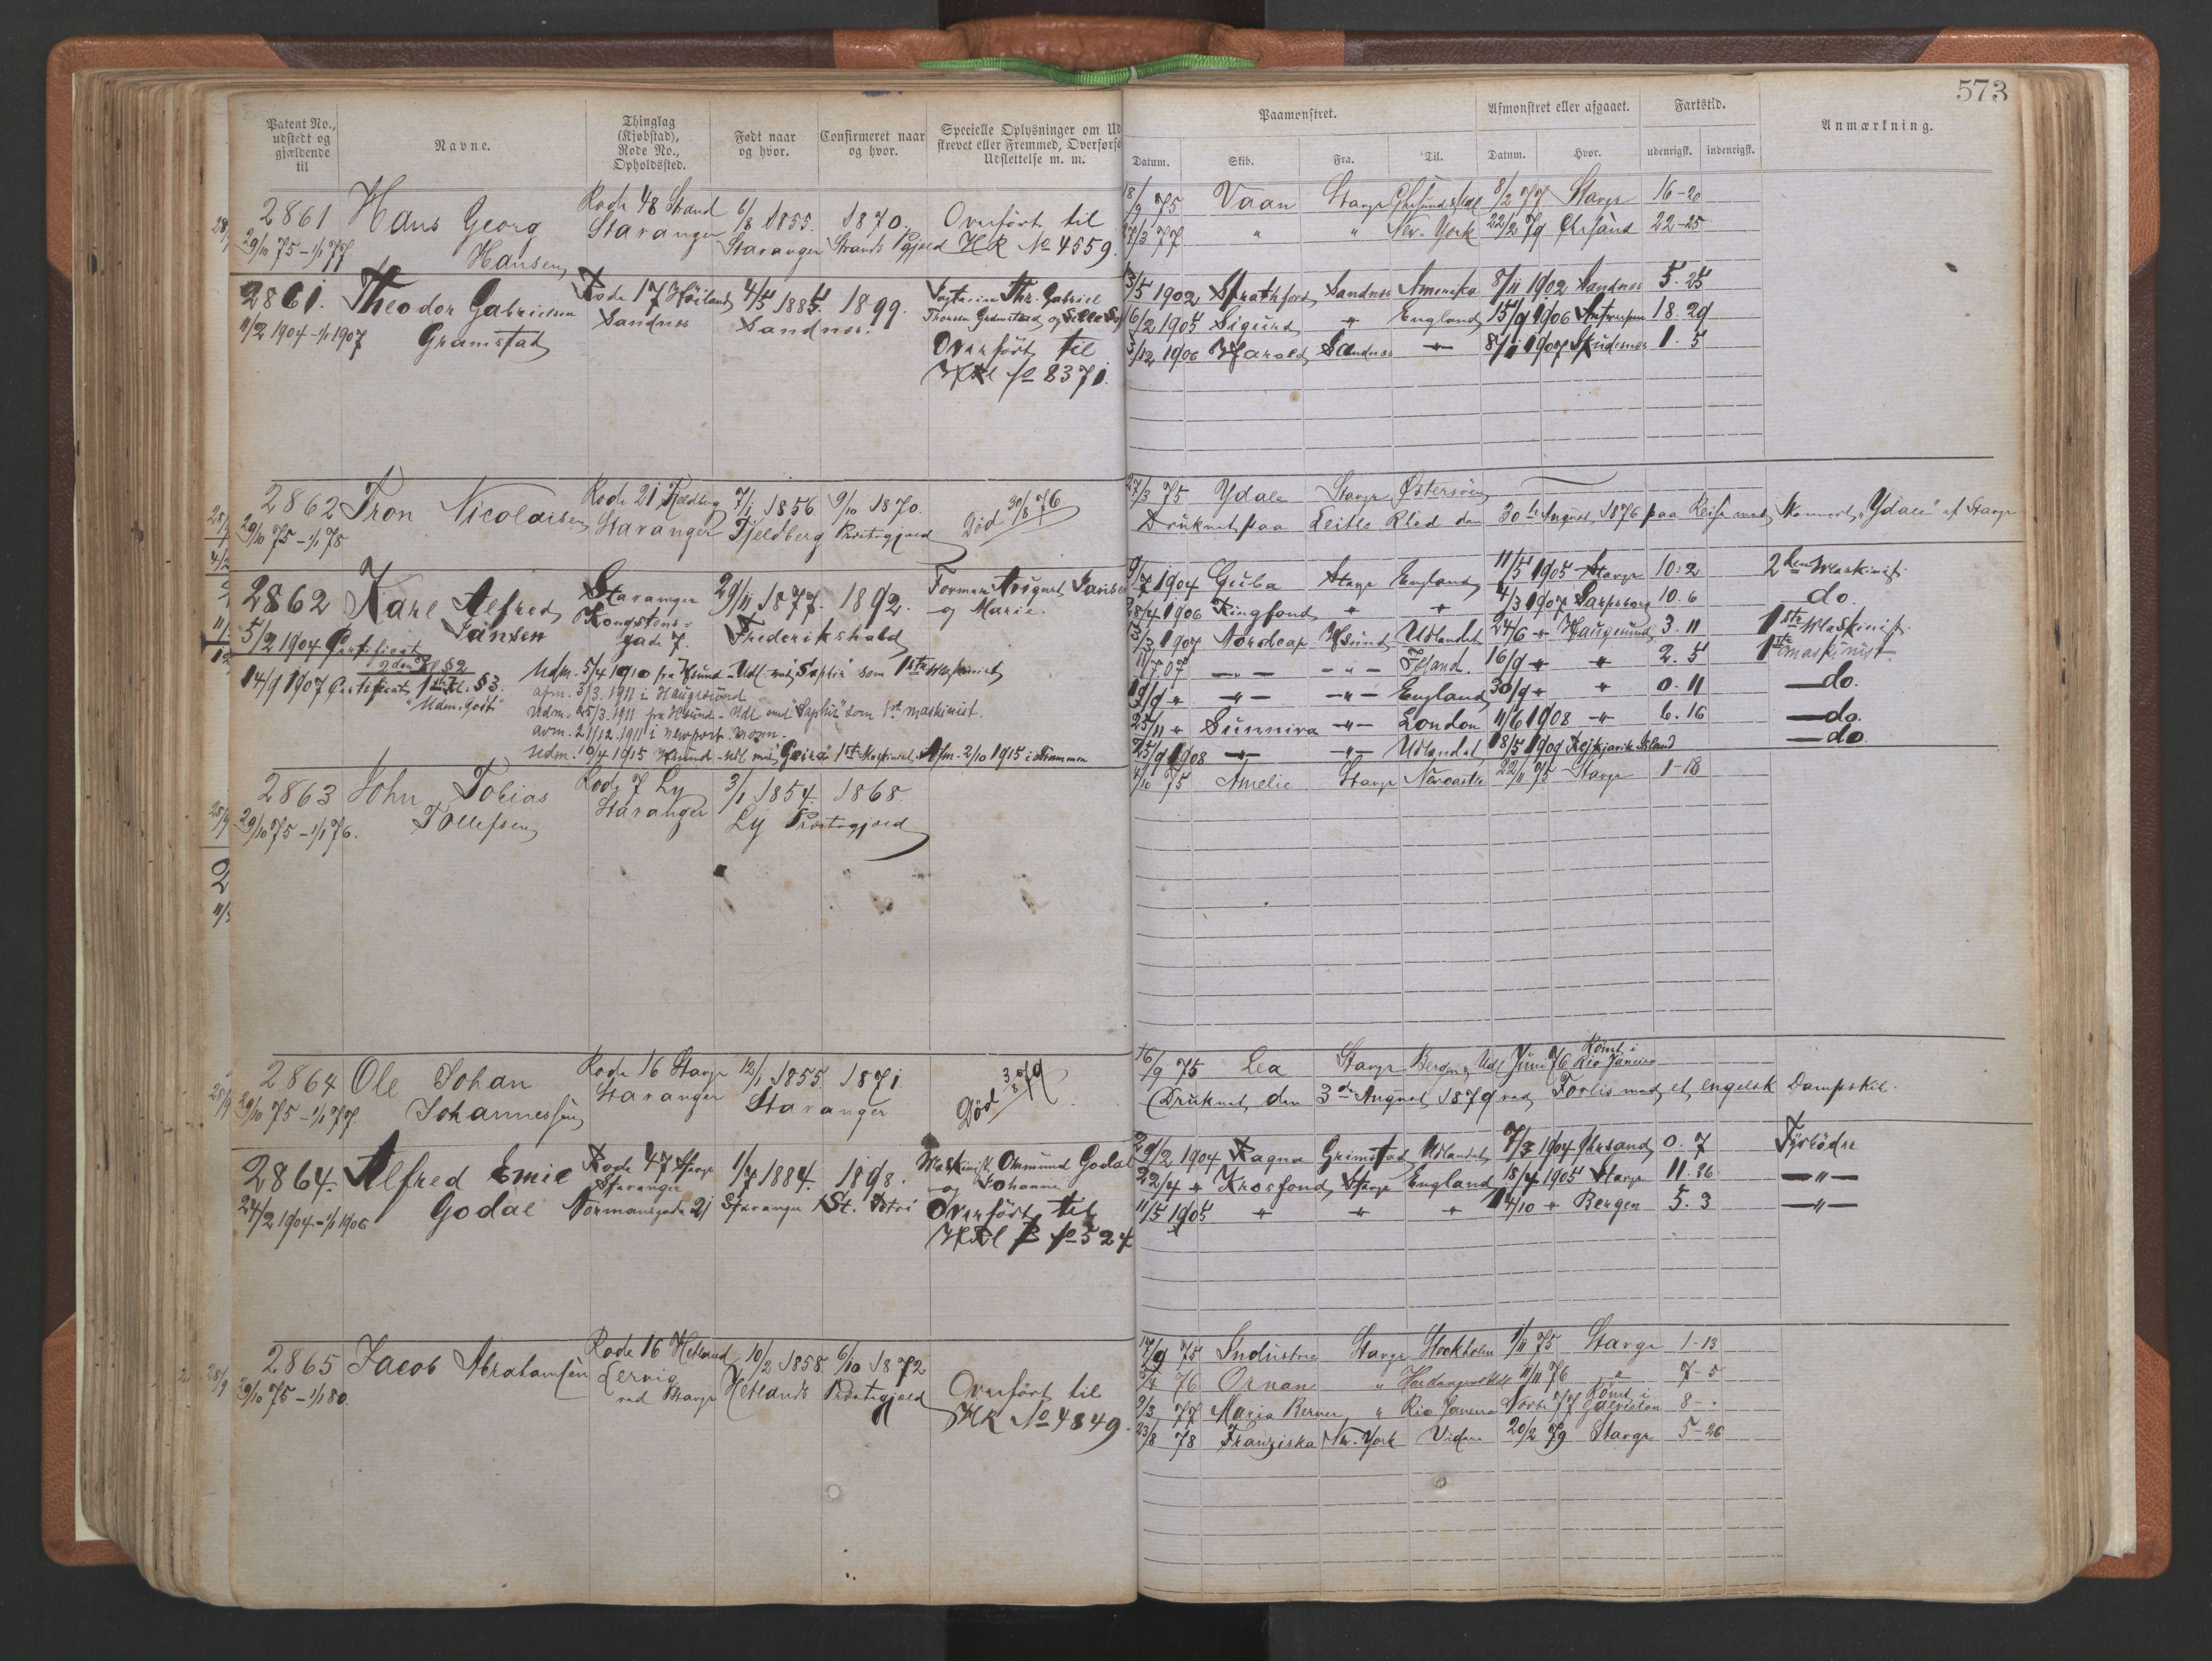 573
Patent No., udstedt og gjældende til
Navne.
Thinglag (Kjøbstad), Rode No., Opholdssted.
Født naar og hvor.
Confirmeret naar og hvor.
Specielle Oplysninger om Ud
skrevet eller Fremmed, Overførse
Udslettelse m. m.
Paamønstret.
Afmønstret eller afgaaet.
Fartstid.
Anmærkning.
Datum. Skib. Fra. Til. Datum. Hvor. udenrigsk. indenrigsk.
2861 Hans Georg Hansen
29/10 75 - 1/1 77
Rode 48 Strand
Stavanger
6/8 1855. Stavanger
1870. Strands Pgjæld
Overført til
HR No 4559.
18/9 75 Vaan Stavgr 8/2 77 Stavgr 16-20
77 " " New-York 22/2 79 Chrsand 22-25
2861. Theodor Gabrielsen Gramstad
11/2 1904-1/1 1907
Rode 17 Høiland
Sandnes
4/5 1885 Sandnes.
1899.
Thr. Gabriel
Thorsen Gramstad og
Overført til
HRl fo 8371.
3/5 1902 Strathford Sandnes Amerika 8/11 1902 Sandnes 5. 25
6/2 1905 Sigurd " England 15/9 1906 Antwerpen 18. 29
3/12 1906 Harald Sandnes " 8/1 1907 Skudesnes 1. 5
2862 Tron Nicolaisen
29/10 75 - 1/1 78
Rode 21 Fjeldberg
Stavanger
7/1 1856 Fjeldberg
9/10 1870. Præstegjæld
Død 30/8 76
27/3 75 Ydale Stavgr Østersøen
Druknet paa Leiths Rhed den 30te August 1876 paa Reise med "Ydale" af Stavgr
2862 Karl Alfred Jansen
5/2 1904 Certificat
2den Kl § 2
14/9 1907 Certificat, 1ste Kl. § 3.
"Udm. godt"
Stavanger
Kongstens-
gade 7.
29/11 1877. Frederikshald
1892.
Formand August Jansen
og Marie.
Udm. 5/4 1910 fra Hsund - Udl. med "Saphir" som 1ste Maskinist
afm. 3/3. 1911 i Haugesund
Udm. 25/3. 1911 fra Hsund - Udl med "Saphir" som 1st maskinist.
avm. 21/12. 1911 i Newport. Monm.
Udm. 10/4 1915 Hsund - Udl med "Geira" 1ste Maskinist. Afm. 2/10 1915 i Drammen
9/7 1904 Guba Stavgr England 11/5 1905 Stavgr 10. 2 2den Maskinist.
28/4 1906 Ringfond " " 4/3 1907 Sarpsborg 10. 6 do.
3/3 1907 Nordcap Hsund Udlandet 24/6 " Haugesund 3. 11 1ste Maskinist.
11/7 07 — " — — " — Island. 16/9 " " 2. 5 1ste maskinist
19/9 " — " — — " — England 30/9 " " 0. 11 — do.
25/11 " Sunniva — " — London 11/6 1908 — " — 6. 16 — do.
25/9 1908 — " — — " — Udlandet 18/5 1909 Rejkjavik Island — do
2863 John Tobias Tollefsen
29/10 75 - 1/1 76.
Rode 7 Ly
Stavanger
3/1 1854. Ly
1868. Præstegjæld
4/10 75 Amelie Stavgr Newcastle 22/11 75 Stavgr 1-18
2864 Ole Johan Johannessen
29/10 75 - 1/1 77
Rode 16 Stavgr
Stavanger
12/1 1855 Stavanger
1871
Død 3/8 79
16/9 75 Lea Stavgr Bergen & Udl Juni 76 Rømt i Rio Janeiro
Druknet den 3die August 1879 ved Forlis med et engelsk Dampskib.
2864. Alfred Emil Godal
24/2 1904-1/1 1906
Rode 47 Stavgr
Stavanger
Normansgade 21
1/7 1884. Stavanger
1898. St. Petri
Maskinist Omund Godal
og Johanne
Overført til
HRl B fo 524
29/2 1904 Ragna Grimstad Udlandet 7/3 1904 Chrsand 0. 7 Fyrbøder
22/4 " Krosfond Stavgr England 18/4 1905 Stavgr 11. 26 — " —
11/5 1905 " " " 14/10 " Bergen 5. 3 — " —
2865 Jacob Abrahamsen
29/10 75 - 1/1 80.
Rode 16 Hetland
Lervig
ved Stavgr
10/2 1858 Hetlands
6/10 1872. Præstegjæld
Overført til
HR No 4849.
17/9 75 Industrie Stavgr Stockholm 1/11 75 Stavgr 1-13
76 Ornan " 11/11 76 " 7-5
9/3 77 Maria Berner " Rio Janeiro Novbr 77 Rømt i Galveston 8-.
23/8 78 Franziska Nw. York Videre 20/2 79 Stavgr 5-26